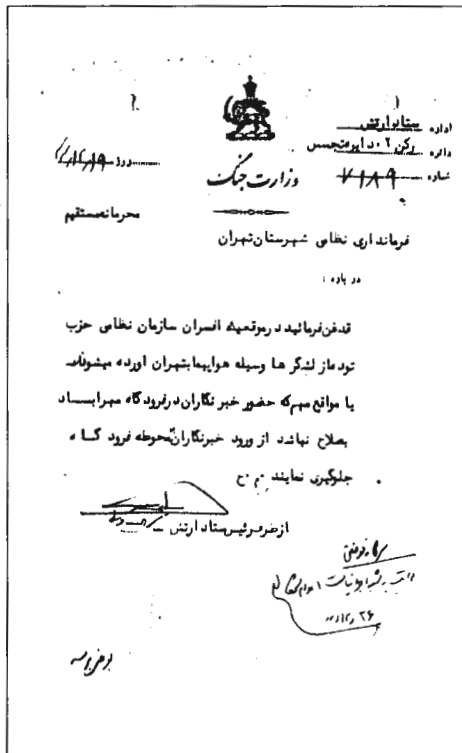 اداره ستاد ارتش
دائره رکن ۲ - دایره تجسس
شماره ۷۱۸۹
روز
وزارت جنگ
محرمانه مستقیم
فرمانداری نظامی شهرستان تهران
در باره :
قدغن فرمائید در موقعیکه افسران سازمان نظامی حزب
توده از لشگرها وسیله هواپیما بتهران آورده میشوند
یا مواقع مهم که حضور خبرنگاران در فرودگاه مهراباد
بصلاح نباشد از ورود خبرنگاران بمحوطه فرودگاه
جلوگیری نمایند م ح
از طرف رئیس ستاد ارتش